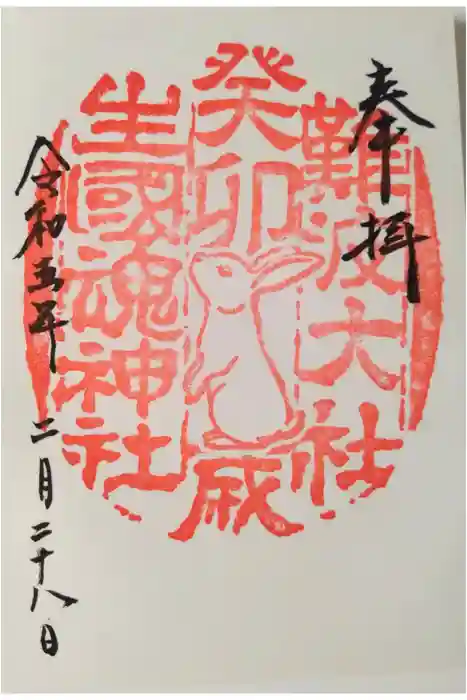 奉拝
難波大社
癸卯歳
生國魂神社
令和五年 二月二十八日